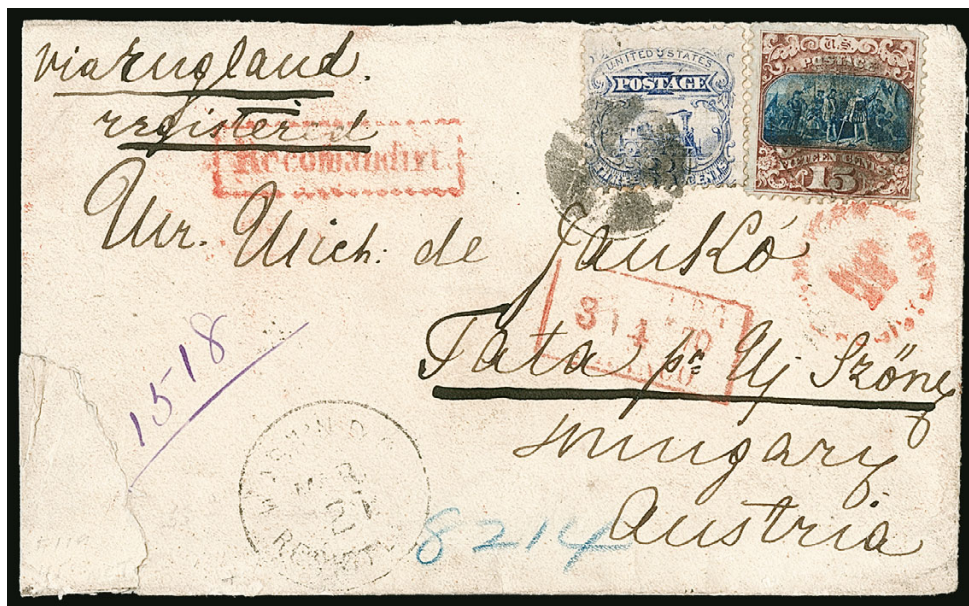 via England.
registered
Recomandirt.
UNITED STATES
POSTAGE
THREE CENTS
3
U.S.
POSTAGE
FIFTEEN CENTS
15
Mr. Mich. de Jankó
Tata pr Uj Szőny
Hungary
Austria
1518
3 4 70
FRANCO
WASH'N. D.C.
MAR
REGISTD
8214